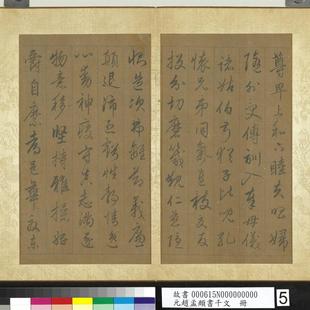 尊卑上和下睦夫唱婦
隨外受傅訓入奉母儀
諸姑伯叔猶子比兒孔
懷兄弟同氣連枝交友
投分切磨箴規仁慈隱
惻造次弗離節義廉
顛退沛匪虧性靜情逸
心動神疲守真志滿逐
物意移堅持雅操好
爵自縻都邑華夏東
故書 000615N000000000
元趙孟頫書千文 冊
5